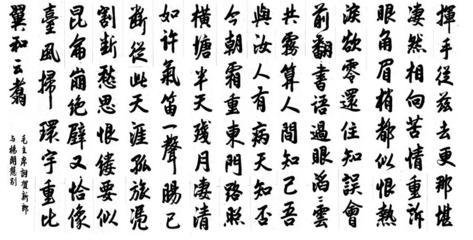 揮手從茲去更那堪
凄然相向苦情重訴
眼角眉梢都似恨熱
淚欲零還住知誤會
前翻書語過眼滔〻雲
共霧算人間知己吾
與汝人有病天知否
今朝霜重東門路照
橫塘半天殘月凄清
如許氣笛一聲腸已
斷從此天涯孤旅憑
割斷愁思恨縷要似
昆侖崩絕壁又恰像
臺風掃環宇重比
翼和云翥
毛主席詞賀新郎
与楊開慧別